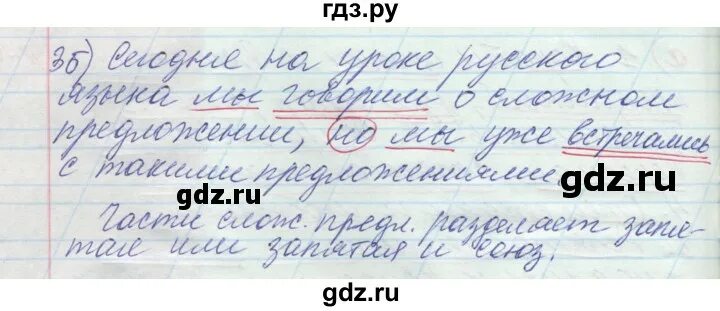 гдз.ру
3б) Сегодня на уроке русского
языка мы говорим о сложном
предложении, но мы уже встречались
с такими предложениями.
gdz.ru
gdz.ru
Части слож. предл. разделяет запя-
тая или запятая и союз.
gdz.ru